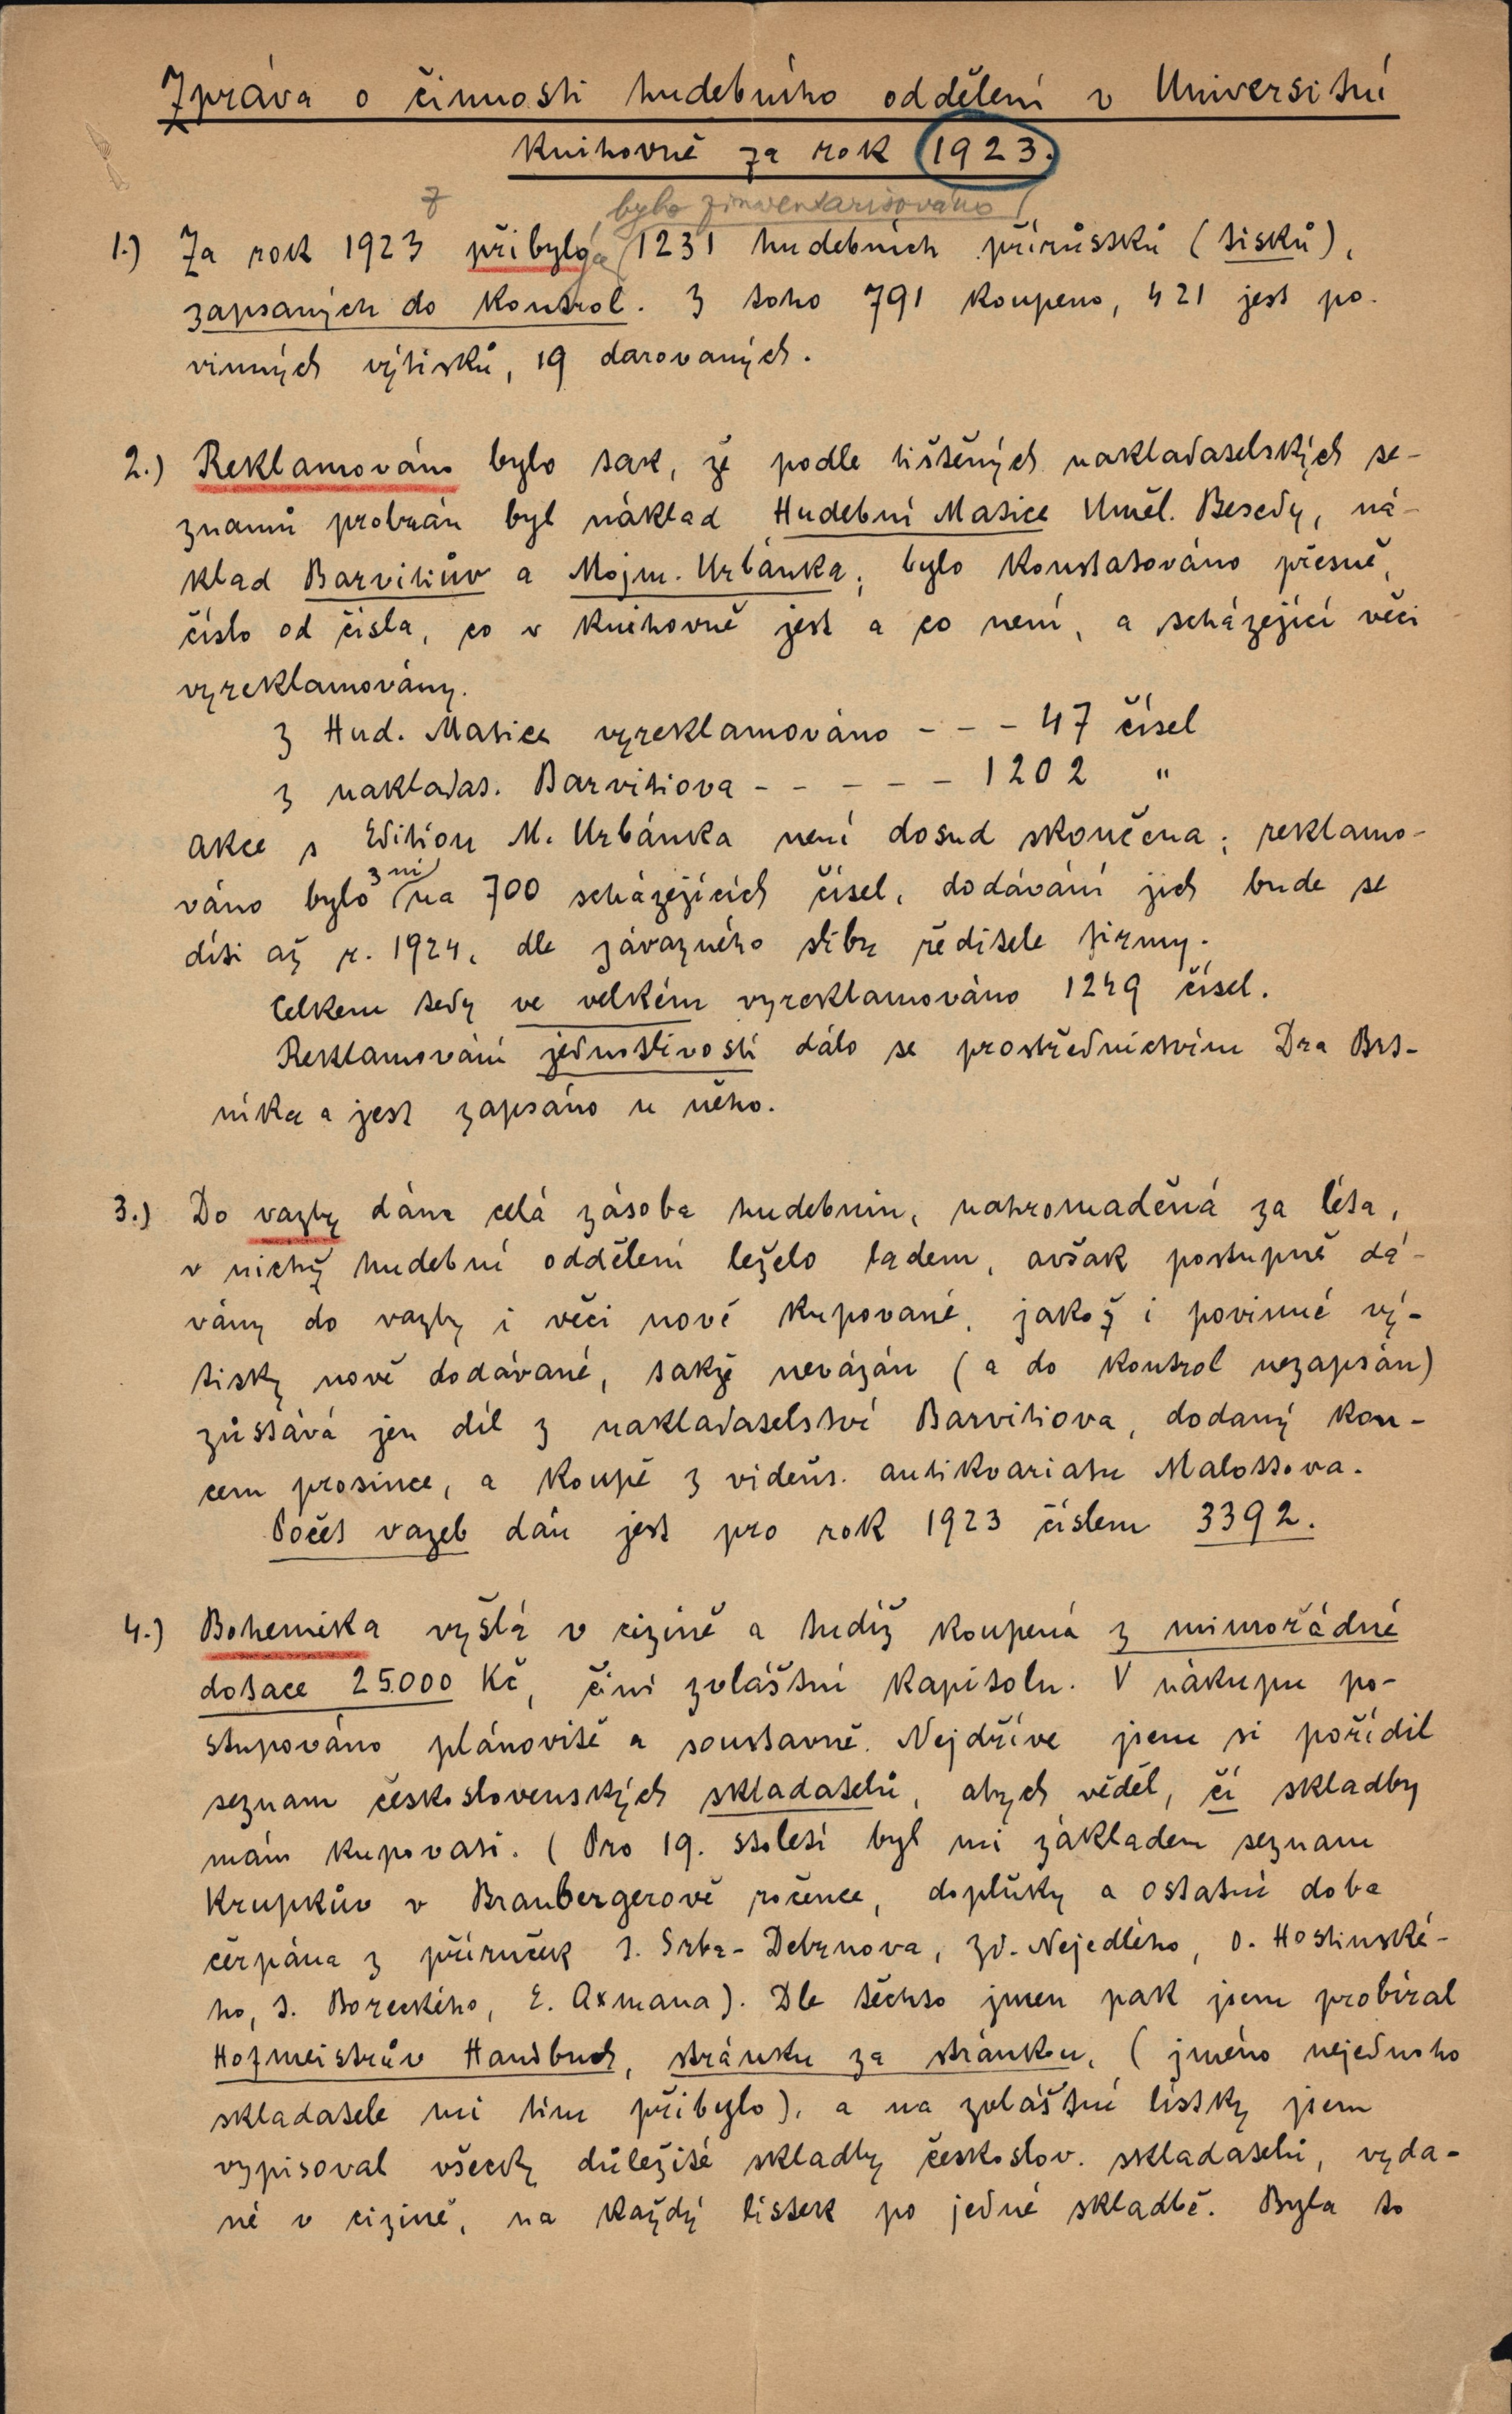 Zpráva o činnosti hudebního oddělení v Universitní
Knihovně za rok 1923.
bylo zinventarisováno
1.) Za rok 1923 přibylo 1231 hudebních přírůstků (tisků),
zapsaných do kontrol. Z toho 791 koupeno, 421 jest po-
vinných výtisků, 19 darovaných.
2.) Reklamováno bylo tak, že podle tištěných nakladatelských se-
znamů probrán byl náklad Hudební Matice Uměl. Besedy, ná-
klad Barvitiův a Mojm. Urbánka; bylo konstatováno přesně,
číslo od čísla, co v knihovně jest a co není, a scházející věci
vyreklamovány.
Z Hud. Matice vyreklamováno - - - 47 čísel
Z nakladat. Barvitiova - - - - - 1202 "
Akce s Edition M. Urbánka není dosud skončena; reklamo-
z ní
váno bylo na 700 scházejících čísel, dodávání jich bude se
díti až r. 1924, dle závazného slibu ředitele firmy.
Celkem tedy ve velkém vyreklamováno 1249 čísel.
Reklamování jednotlivostí dálo se prostřednictvím Dra Brt-
níka a jest zapsáno u něho.
3.) Do vazby dána celá zásoba hudebnin, nahromaděná za léta,
v nichž hudební oddělení leželo ladem, avšak postupně dá-
vány do vazby i věci nově kupované, jakož i povinné vý-
tisky nově dodávané, takže nevázán (a do kontrol nezapsán)
zůstává jen díl z nakladatelství Barvitiova, dodaný kon-
cem prosince, a koupě z vídeňs. antikvariatu Malottova.
Počet vazeb dán jest pro rok 1923 číslem 3392.
4.) Bohemika vyšlá v cizině a tudíž koupená z mimořádné
dotace 25.000 Kč, činí zvláštní kapitolu. V nákupu po-
stupováno plánovitě a soustavně. Nejdříve jsem si pořídil
seznam československých skladatelů, abych věděl, čí skladby
mám kupovati. (Pro 19. století byl mi základem seznam
Krupkův v Branbergerově ročence, doplňky a ostatní doba
čerpána z příruček J. Srba-Debrnova, Zd. Nejedlého, O. Hostinské-
ho, J. Boreckého, E. Axmana). Dle těchto jmen pak jsem probíral
Hofmeistrův Handbuch, stránku za stránkou, (jméno nejednoho
skladatele mi tím přibylo), a na zvláštní lístky jsem
vypisoval všecky důležité skladby českoslov. skladatelů, vyda-
né v cizině, na každý lístek po jedné skladbě. Byla to